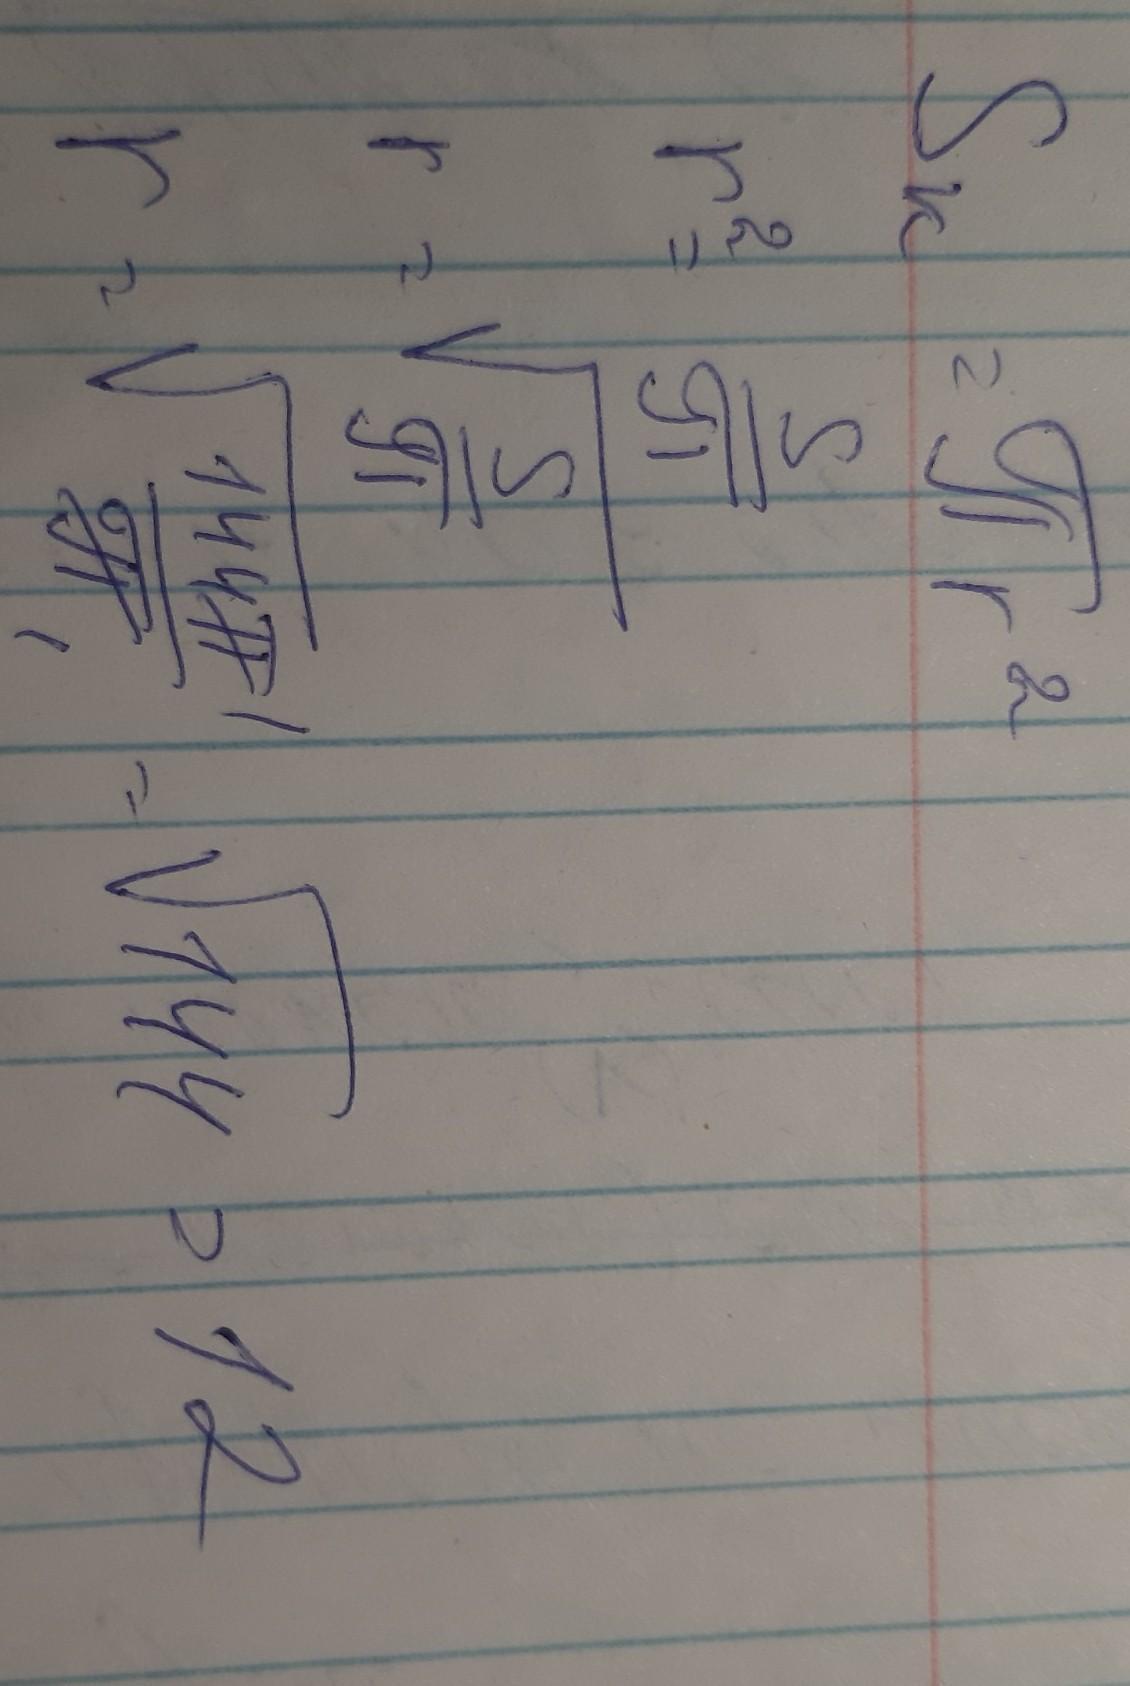 Sк = πr²
r² = S/π
r = √(S/π)
r = √(144π/π) = √144 = 12